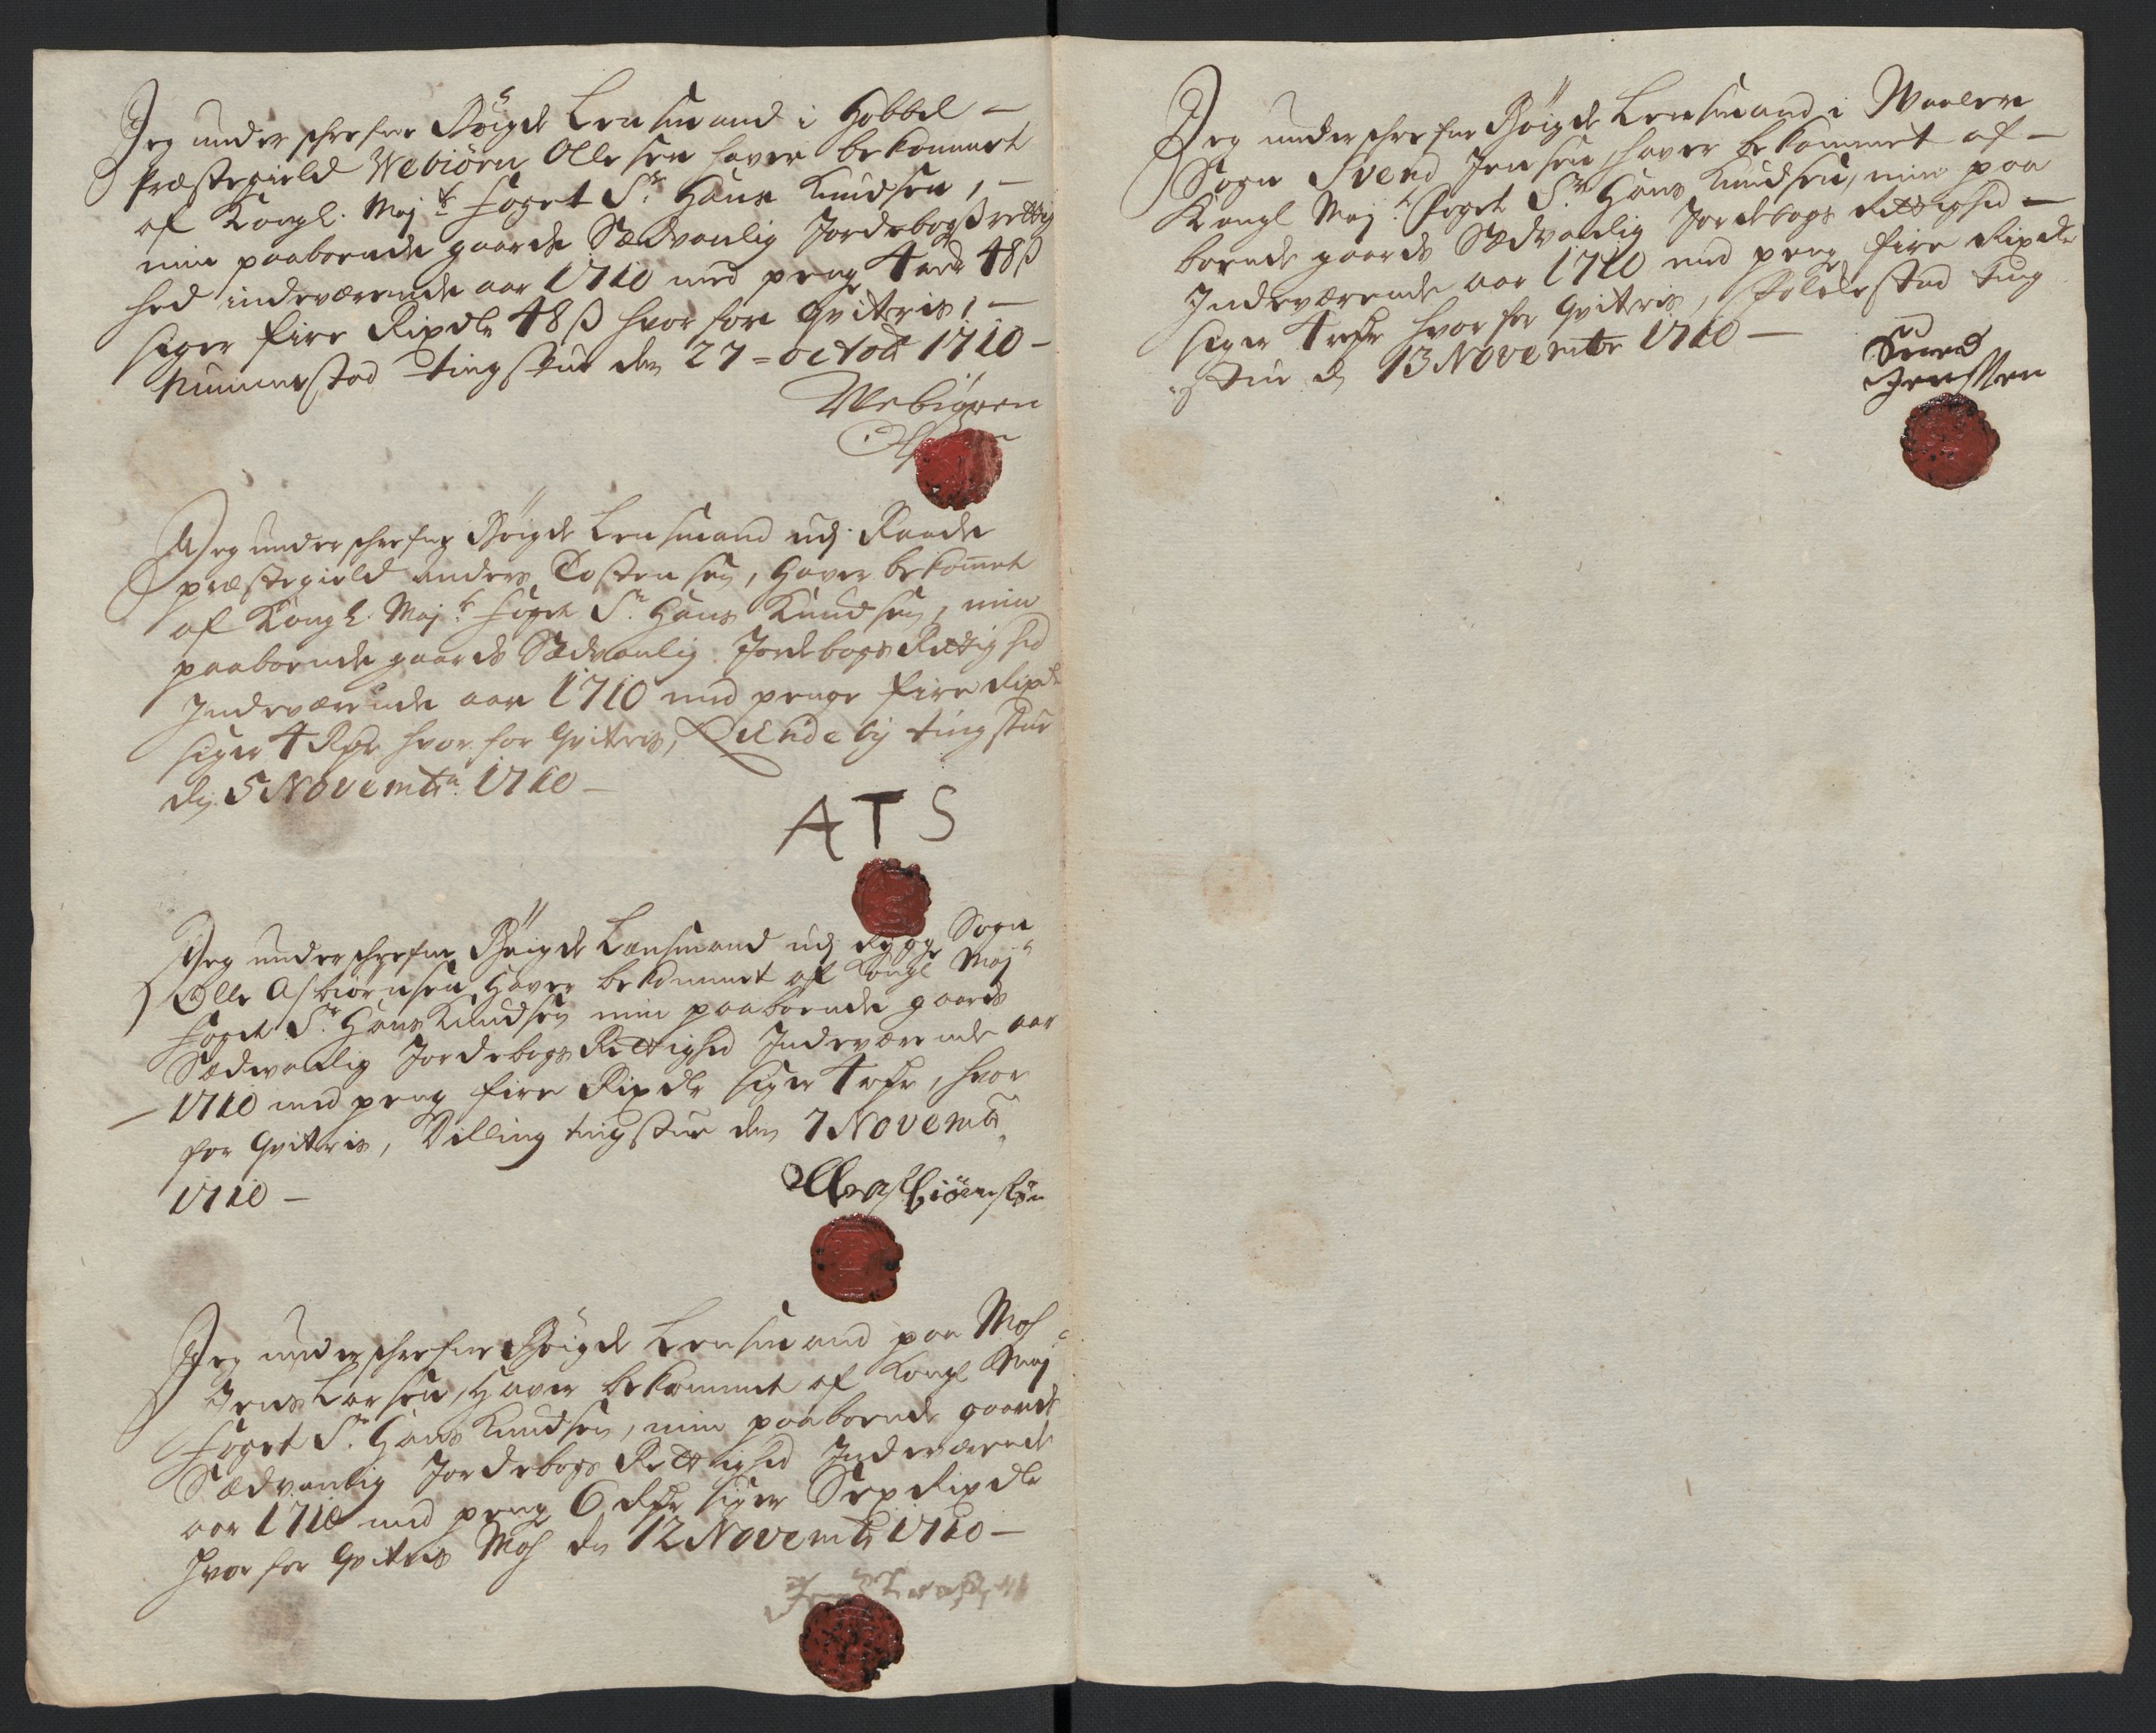 Jeg underschrefne Bøigde Lensmand i Hobbel –
Præstegield Webiørn Ollesen haver bekommet
af Kongl. Maj.ts foget Sr. Hans Knudsen, –
min paaboende gaards Sædvanlig Jordebogs rettig
hed indeværende aar 1710 med peng 4 rdr 48 ß
siger fire Rixdlr 48 ß hvorfor qviteris, –
tingstue den 27 = octobr 1710 –
Webiøren
Jeg underschrefne Bøigde Lensmand udj Raade
præstegield anders Tostensen, haver bekomet
af Kongl. Maj.ts foget Sr. Hans Knudsen, min
paaboende gaards Sædvanlig Jordebogs Rettighed
Indeværende aar 1710 med penge fire Rixdr
siger 4 Rdr hvorfor qviteris, tingstue
den 5 Novembr. 1710 –
ATS
Jeg underschrefne Bøigde Lensmand udj Rygge Sogn
Olle Asbiørnsen, haver bekommet af Kongl Maj.ts
foget Sr. Hans Knudsen min paaboende gaards
Sædvanlig Jordebogs Rettighed Indeværende aar
1710 med peng fire Rixdlr siger 4 rdr, hvor
for qviteris, Villing tingstue den 7 Novembr
1710 –
Olle Asbiørnsøn
Jeg underschrefne Bøigde Lensmand paa Mos
Jens Larsen, haver bekommet af Kongl Maj.ts
foget Sr. Hans Knudsen, min paaboende gaards
Sædvanlig Jordebogs Rettighed Indeværende
aar 1710 med peng 6 Rdr siger Sex Rixdlr
hvorfor qviteris Mos den 12 Novembr 1710 –
Jeg underschrefne Bøigde Lensmand i Waaler
Sogn Svend Jensen, haver bekommet af –
Kongl Maj.ts foget Sr. Hans Knudsen, min paa
boende gaards Sædvanlig Jordebogs Rettighed –
Indeværende aar 1710 med peng fire Rixdlr
siger 4 rdr hvorfor qviteris, ting
stue den 13 Novembr 1710 –
Svend
Jenssen